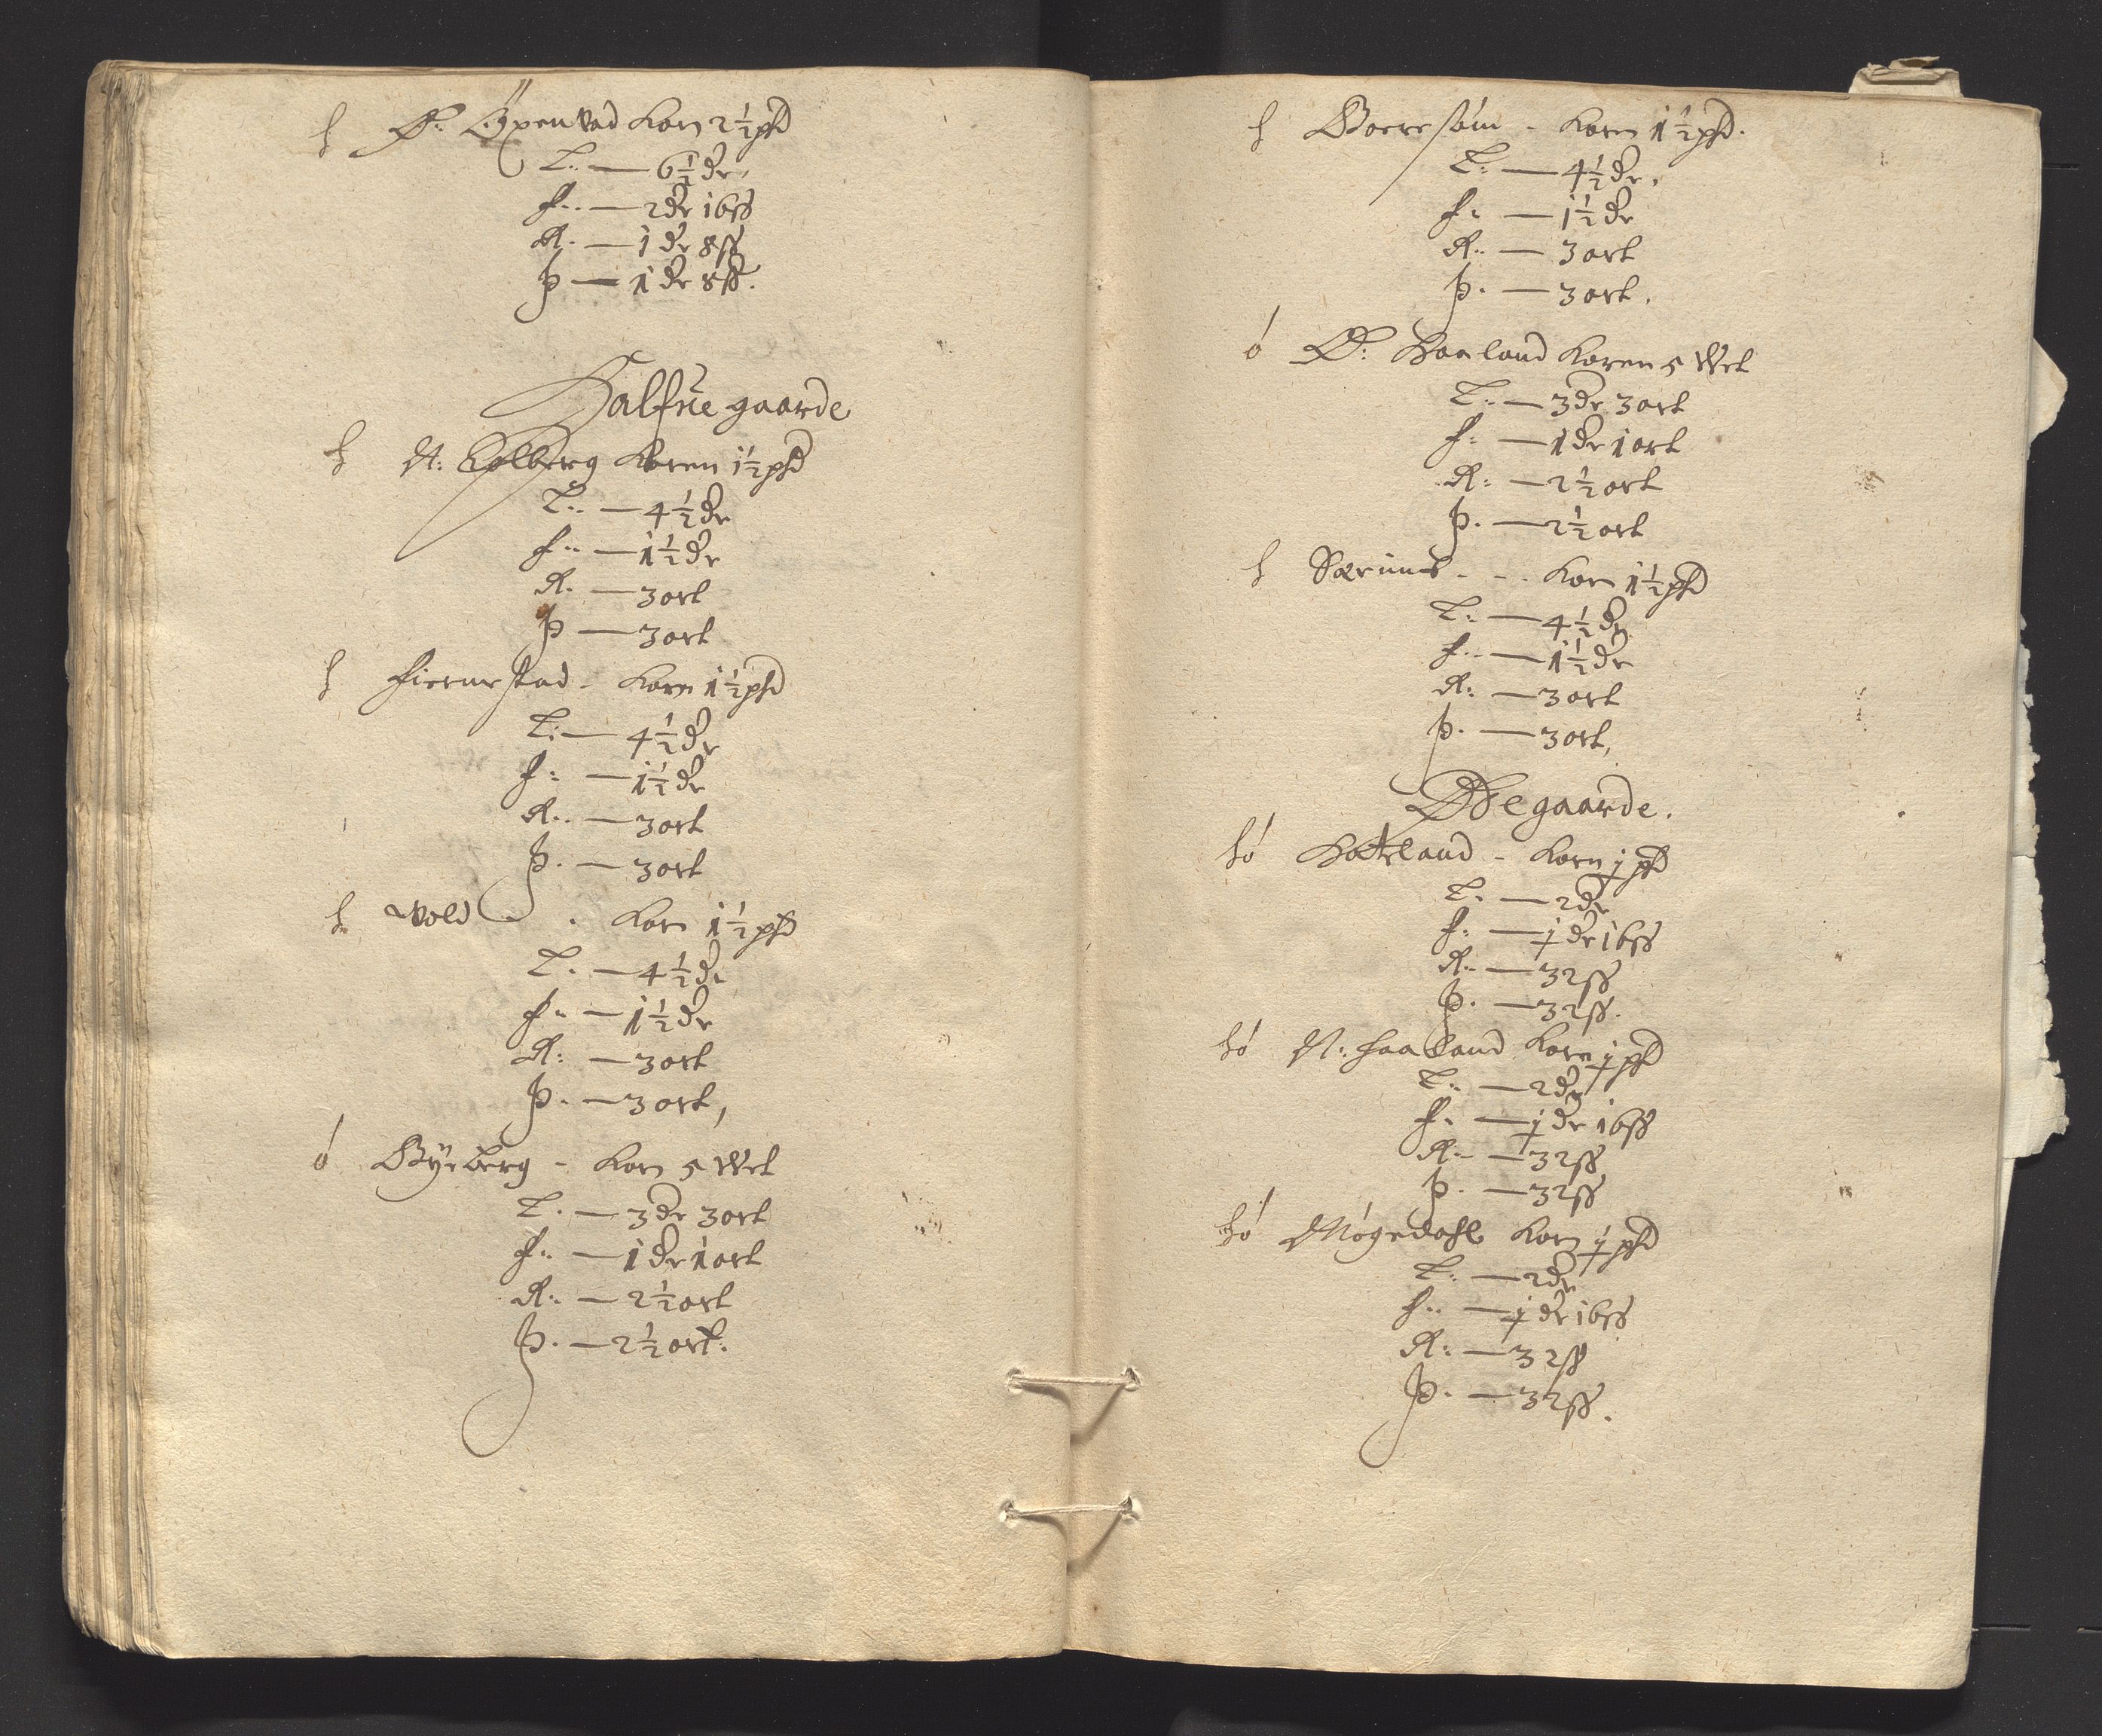 h Ø: Øxenvad Korn 2½ pd
L: — 6½ dr.
f: — 2 dr 16 ß
R. — 1 dr 8 ß
Þ — 1 dr 8 ß.
Halfue gaarde
h N: Kolberg Koren 1½ pd
L: — 4½ dr
f: — 1½ dr
R. — 3 ort
Þ — 3 ort
h fiermestad - Korn 1½ pd
L: — 4½ dr
f: — 1½ dr
R: — 3 ort
Þ. — 3 ort
h Wold . Korn 1½ pd
L. — 4½ dr
f: — 1½ dr
R: — 3 ort
Þ. — 3 ort,
ó Byeberg - Korn 5 Wet
L. — 3 dr 3 ort
f: — 1 dr 1 ort
R: — 2½ ort
Þ. — 2½ ort:
h Boeresóm - Korn 1½ pd.
L: — 4½ dr.
f: — 1½ dr
R: — 3 ort
Þ. — 3 ort.
ó Ø: Haaland Koren 5 Wet
L: — 3 dr 3 ort
f: — 1 dr 1 ort
R: — 2½ ort
Þ. — 2½ ort
h - - - Korn 1½ pd
L: — 4½ dr
f: — 1½ dr
R: — 3 ort
Þ. — 3 ort,
Ødegaarde.
hó Hatteland - Korn j pd
L. — 2 dr
f: — j dr 16 ß
R: — 32 ß
Þ. — 32 ß.
hó N: haaland Korn j pd
L: — 2 dr
f. — j dr 16 ß
R: — 32 ß
Þ. — 32 ß
hó Møgedahl Korn j pd
L: — 2 dr
f: — j dr 16 ß
R: — 32 ß
Þ. — 32 ß.